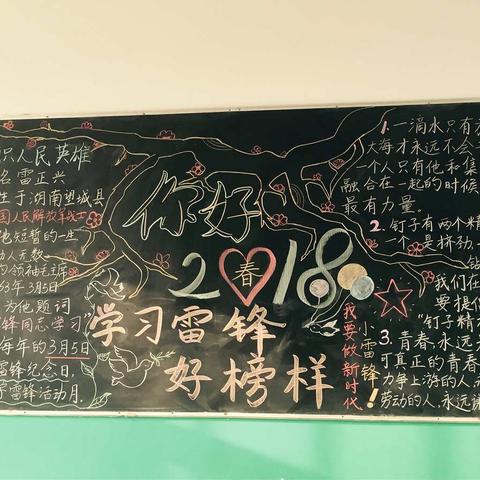 识人民英雄
名雷正兴
生于湖南望城县
国人民解放军战士
他短暂的一生
动人无数
的领袖毛主席
63年3月5日
为他题词
锋同志学习”
每年的3月5日
雷锋纪念日,
学雷锋活动月.
你好
2018
春
学习雷锋
好榜样
我要做新时代
小雷锋!
1.一滴水只有放
大海才永远不会
一个人只有他和集
融合在一起的时候
最有力量.
2.钉子有两个精
一个是挤劲.一
钻
我们在
要提倡
“钉子精神
3.青春,永远
可真正的青春
力争上游的人,永
劳动的人,永远谦